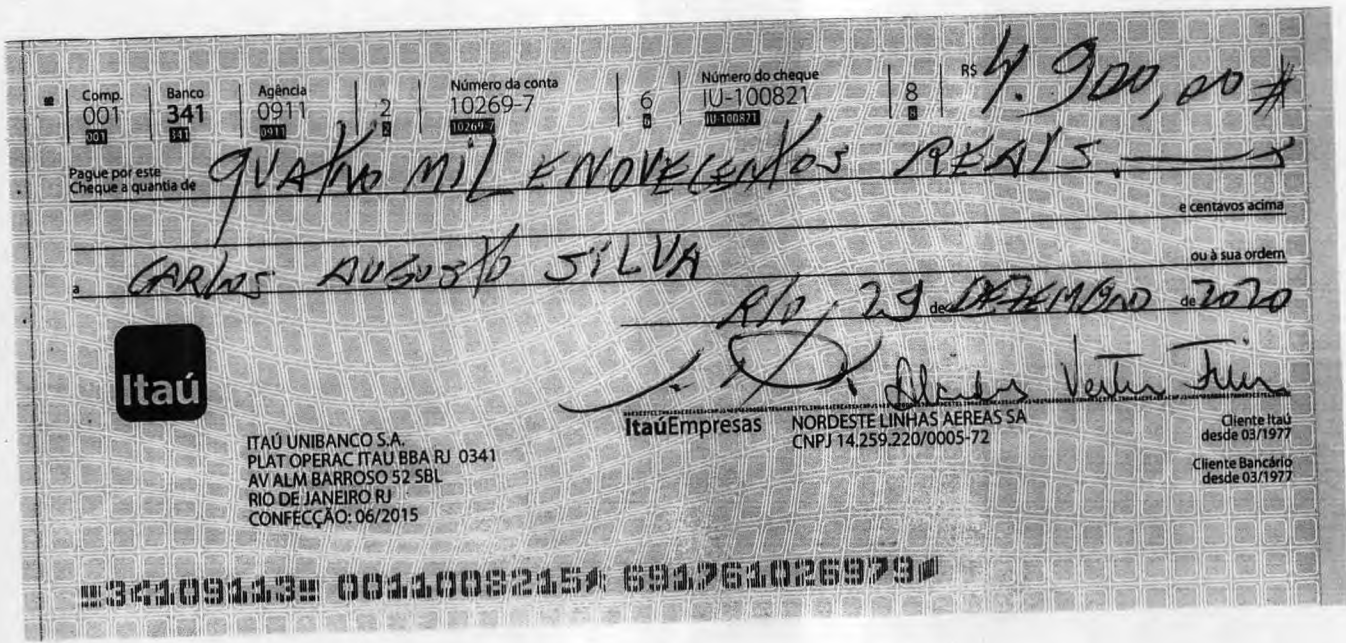 Comp. Banco Agência Número da conta Número do cheque R$ 4.900,00 #
001 341 0911 2 10269-7 6 IU-100821 8
001 341 0911 2 10269-7 6 IU-100821 8
Pague por este
Cheque a quantia de QUATRO MIL E NOVECENTOS REAIS
e centavos acima
a CARLOS AUGUSTO SILVA ou à sua ordem
RIO, 29 de DEZEMBRO de 2020
Itaú
ItaúEmpresas NORDESTE LINHAS AEREAS SA
CNPJ 14.259.220/0005-72
Cliente Itaú
desde 03/1977
Cliente Bancário
desde 03/1977
ITAÚ UNIBANCO S.A.
PLAT OPERAC ITAU BBA RJ 0341
AV ALM BARROSO 52 SBL
RIO DE JANEIRO RJ
CONFECÇÃO: 06/2015
34109113 0011008215 691761026979